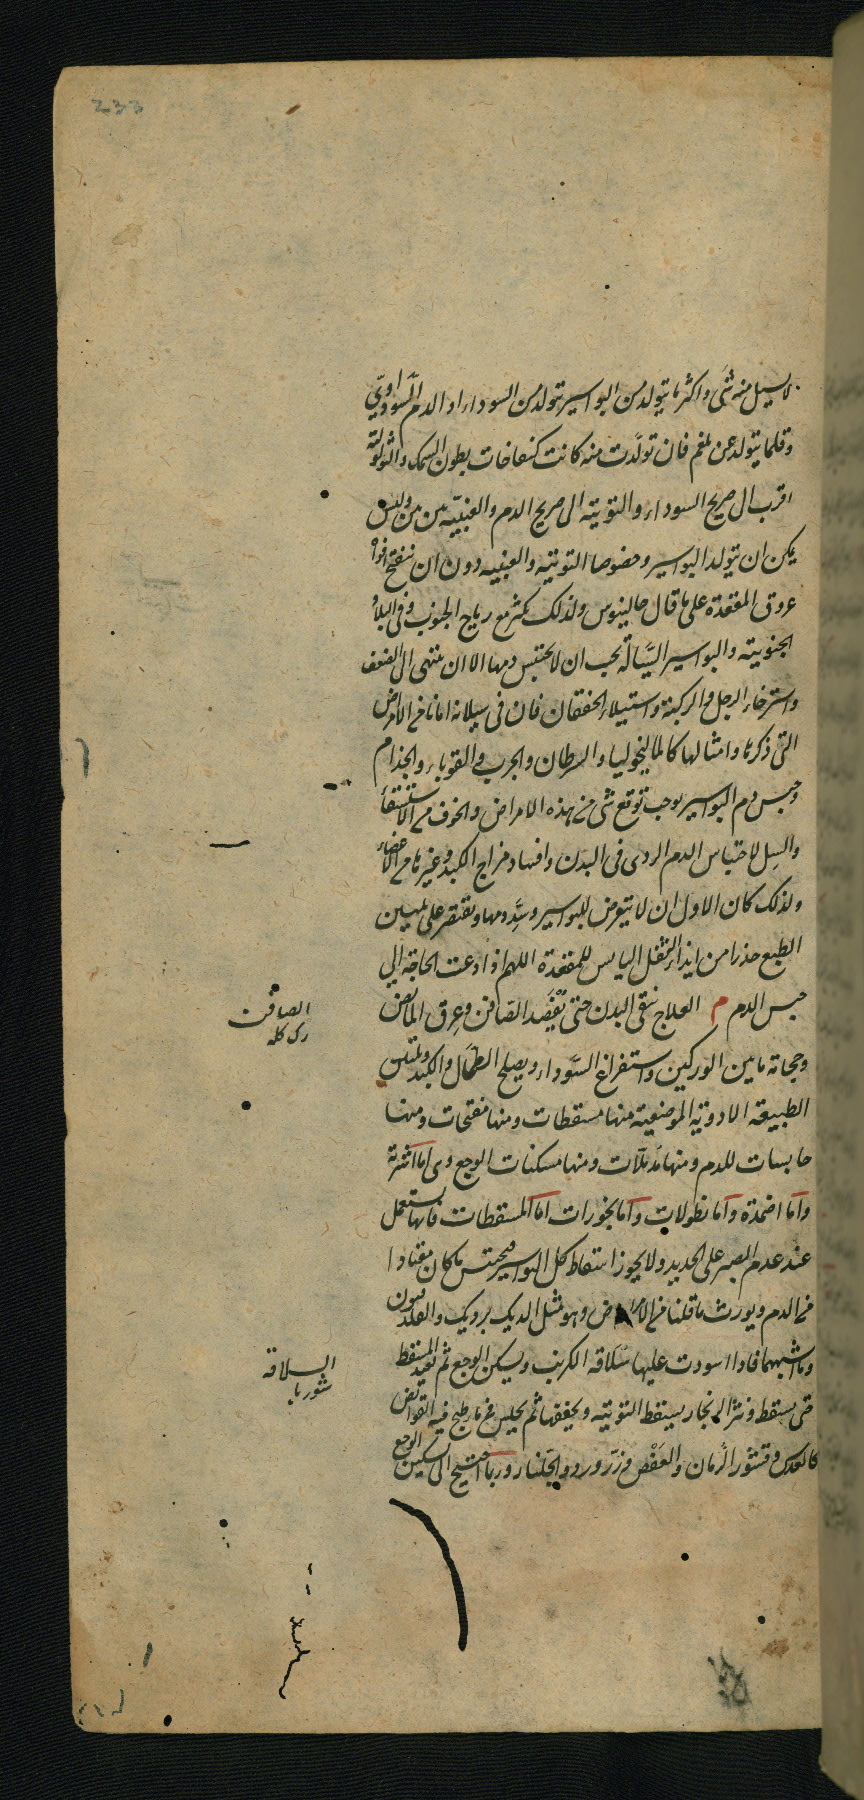 233
لا يسيل منه شئ واكثر ما يتولد من البواسير يتولد من السوداء او الدم السوداوي
وقلما يتولد عن بلغم فان تولدت منه كانت كنفاخات بطون السمك والثؤلولة
اقرب الى صريح السوداء والتوتيه الى صريح الدم والعنبيّه بين بين وليس
يمكن ان يتولد البواسير وخصوصا التوتيه والعنبيه دون ان ينفتح افواه
عروق المقعدة على ما قال جالينوس ولذلك يكثر مع رياح الجنوب وفي البلاد
الجنوبيته والبواسير السيّالة يجب ان لا يحتبس دمها الا ان ينتهي الى الضعف
واسترخاء الرجل والركبة واستيلاء الخفقان فان في سيلانه امانا من الامراض
التي ذكرنا وامثالها كالماليخوليا والسرطان والجرب والقوباء والجذام
وحبس دم البواسير يوجب توقع شئ من هذه الامراض والخوف من الاستسقاء
والسل لاحتباس الدم الردى في البدن وافساد مزاج الكبد وغيرها من الاعضاء
ولذلك كان الاولى ان لا يتعرض للبواسير وسدّ دمها ويقتصر على تليين
الطبع حذرا من ايذاء الثفل اليابس للمقعدة اللهم اذا دعت الحاجة الي
حبس الدم م العلاج ينقى البدن حتى بفصد الصافن وعرق المابض
وحجامة ما بين الوركين واستفراغ السوداء ويصلح الطحال والكبد ويلين
الطبيعة الادوية الموضعية منها مسقطات ومنها مفتحات ومنها
حابسات للدم ومنها مدملات ومنها مسكنات الوجع وهي اما اشربة
واما اضمدة واما نطولات واما بخورات اما المسقطات فانها يستعمل
عند عدم الصبر على الحديد ولا يجوز اسقاط كل البواسير فيحتبس ما كان معتادا
من الدم ويورث ما قلنا من الامراض وهو مثل الديك برديك والقلدفيون
وما اشبههما فاذا اسودت عليها سلاقة الكرنب ويسكن الوجع ثم تعيد المسقط
حتى يسقط ونثر الزنجار يسقط التوتيه ويجففها ثم يجلس في ما طبخ فيه القوابض
كالعدس وقشور الرمان والعفص وزر ورد والجلنار وربما احتيج الى تسكين الوجع
الصافن
رك كله
السلاقه
شوربا